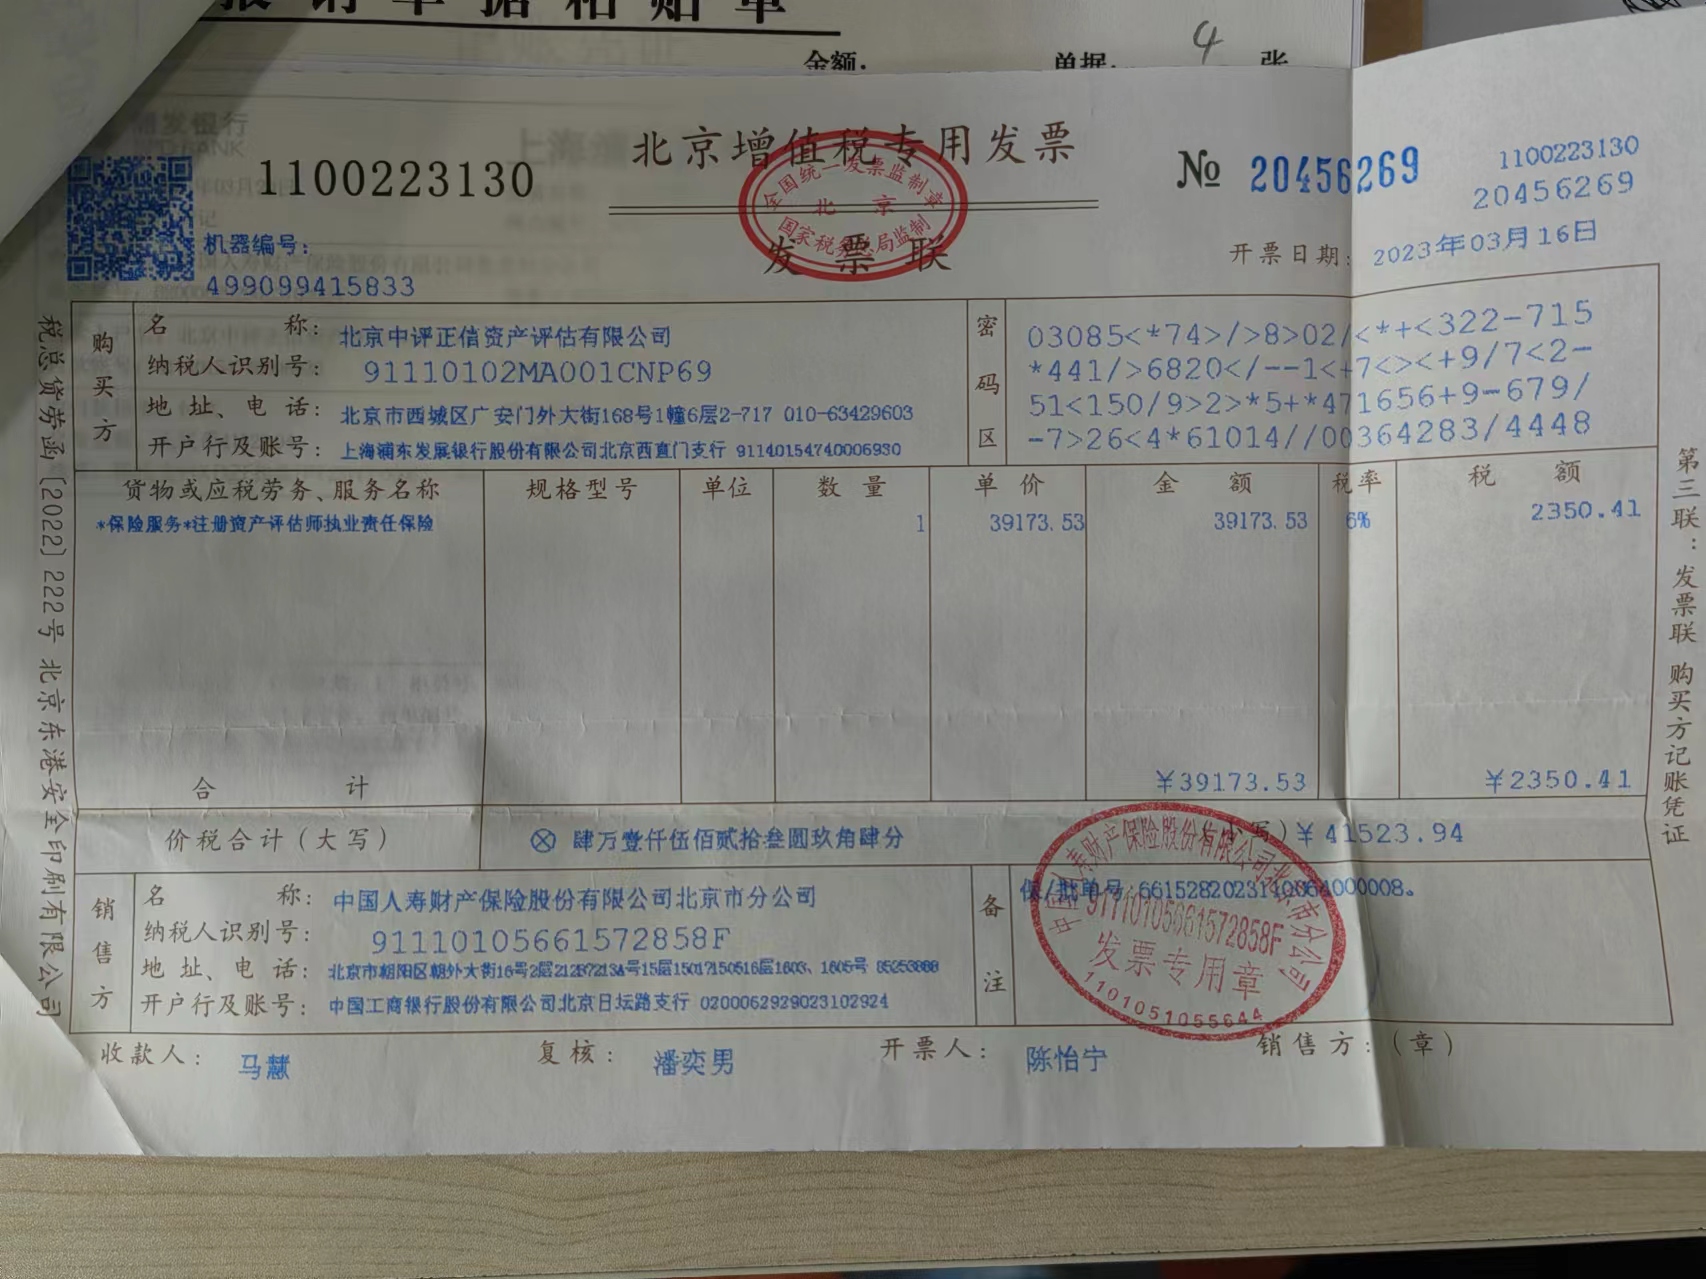 报销单据粘贴单
金额:
单据: 4 张
1100223130
北京增值税专用发票
№ 20456269
1100223130
20456269
全国统一发票监制章
北京
国家税务总局监制
发票联
机器编号:
499099415833
开票日期: 2023年03月16日
税总货劳函〔2022〕222号 北京东港安全印刷有限公司
购买方
名称: 北京中评正信资产评估有限公司
纳税人识别号: 91110102MA001CNP69
地址、电话: 北京市西城区广安门外大街168号1幢6层2-717 010-63429603
开户行及账号: 上海浦东发展银行股份有限公司北京西直门支行 91140154740006930
密码区
03085<*74>/>8>02/<*+<322-715
*441/>6820</--1<+7<><+9/7<2-
51<150/9>2>*5+*471656+9-679/
-7>26<4*61014//00364283/4448
货物或应税劳务、服务名称 规格型号 单位 数量 单价 金额 税率 税额
*保险服务*注册资产评估师执业责任保险 1 39173.53 39173.53 6% 2350.41
合计 ¥39173.53 ¥2350.41
价税合计(大写) ⊗ 肆万壹仟伍佰贰拾叁圆玖角肆分 写)¥41523.94
第三联:发票联 购买方记账凭证
销售方
名称: 中国人寿财产保险股份有限公司北京市分公司
纳税人识别号: 91110105661572858F
地址、电话: 85253888
开户行及账号: 中国工商银行股份有限公司北京日坛路支行 0200062929023102924
备注
保/批单号:661528202311
中国人寿财产保险股份有限公司北京市分公司
91110105661572858F
发票专用章
1101051055644
收款人: 马慧
复核: 潘奕男
开票人: 陈怡宁
销售方:(章)